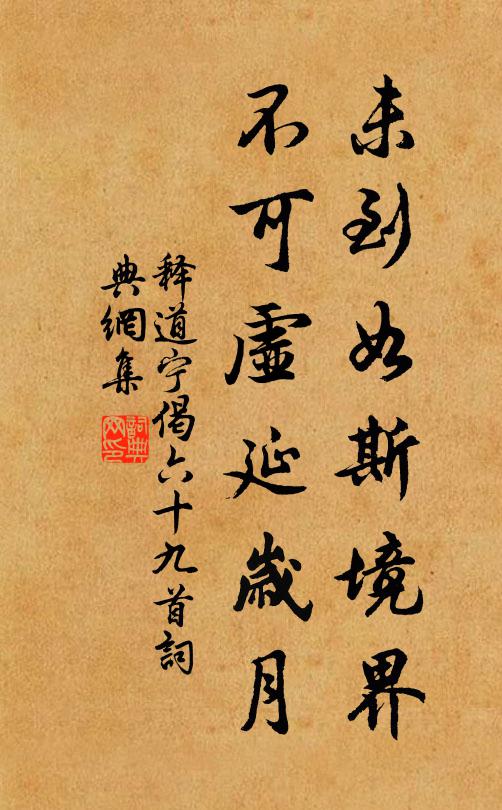 未到如斯境界
不可虛延歲月
释道宁偈六十九首詞
典網集
詞典网印